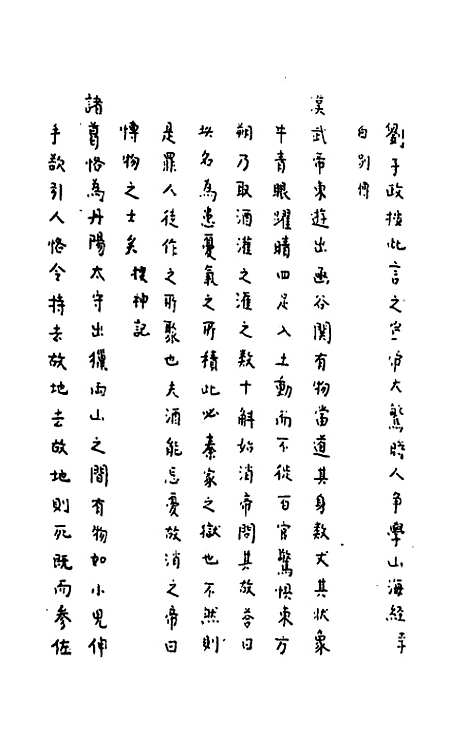 劉子政按此言之宣帝大驚時人爭學山海經李
白別傳
漢武帝東遊出函谷関有物當道其身数丈其状象
牛青眼躍睛四足入土動而不徙百官驚惧東方
朔乃取酒灌之灌之数十斛始消帝問其故答曰
此名為患憂氣之所積此必秦家之獄也不然則
是罪人徒作之所聚也夫酒能忘憂故消之帝曰
愽物之士矣 搜神記
諸葛恪為丹陽太守出獵両山之間有物如小兒伸
手欲引人恪令持去故地去故地則死既而參佐